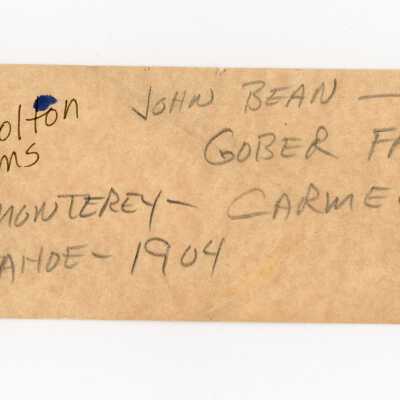 olton
ms
JOHN BEAN —
GOBER FA
MONTEREY – CARME
AHOE – 1904